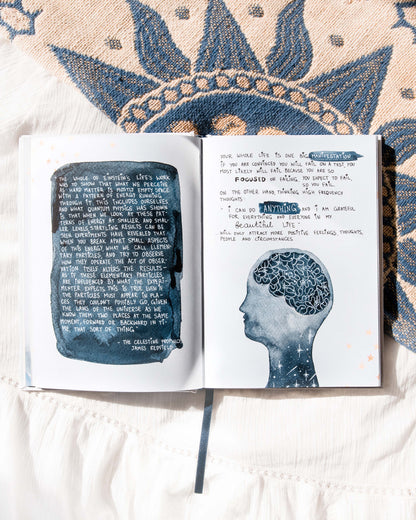 "THE WHOLE OF EINSTEIN'S LIFE'S WORK
WAS TO SHOW THAT WHAT WE PERCEIVE
AS HARD MATTER IS MOSTLY EMPTY SPACE
WITH A PATTERN OF ENERGY RUNNING
THROUGH IT. THIS INCLUDES OURSELVES.
AND WHAT QUANTUM PHYSICS HAS SHOWN
IS THAT WHEN WE LOOK AT THESE PAT-
TERNS OF ENERGY AT SMALLER AND SMAL-
LER LEVELS, STARTLING RESULTS CAN BE
SEEN. EXPERIMENTS HAVE REVEALED THAT
WHEN YOU BREAK APART SMALL ASPECTS
OF THIS ENERGY, WHAT WE CALL ELEMEN-
TARY PARTICLES, AND TRY TO OBSERVE
HOW THEY OPERATE, THE ACT OF OBSER-
VATION ITSELF ALTERS THE RESULTS-
AS IF THESE ELEMENTARY PARTICLES
ARE INFLUENCED BY WHAT THE EXPERI-
MENTER EXPECTS. THIS IS TRUE EVEN IF
THE PARTICLES MUST APPEAR IN PLA-
CES THEY COULDN'T POSSIBLY GO, GIVEN
THE LAWS OF THE UNIVERSE AS WE
KNOW THEM: TWO PLACES AT THE SAME
MOMENT, FORWARD OR BACKWARD IN TI-
ME, THAT SORT OF THING."
- THE CELESTINE PROPHECY
JAMES REDFIELD
YOUR WHOLE LIFE IS ONE BIG MANIFESTATION
IF YOU ARE CONVINCED YOU WILL FAIL ON A TEST, YOU
MOST LIKELY WILL FAIL BECAUSE YOU ARE SO
FOCUSED ON FAILING. YOU EXPECT TO FAIL
SO YOU FAIL.
ON THE OTHER HAND, THINKING HIGH FREQUENCY
THOUGHTS
- I CAN DO ANYTHING AND I AM GRATEFUL
FOR EVERYTHING AND EVERYONE IN MY
beautiful LIFE -
WILL ONLY ATTRACT MORE POSITIVE FEELINGS, THOUGHTS,
PEOPLE AND CIRCUMSTANCES.